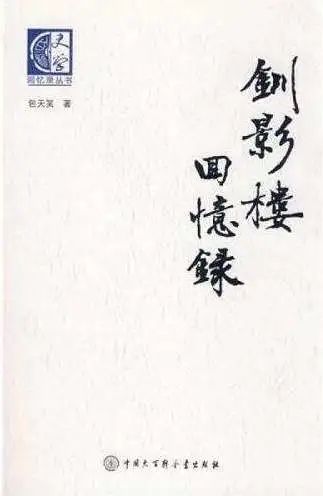 史学
回忆录丛书
包天笑 著
釧影樓
回憶錄
中国大百科全书出版社